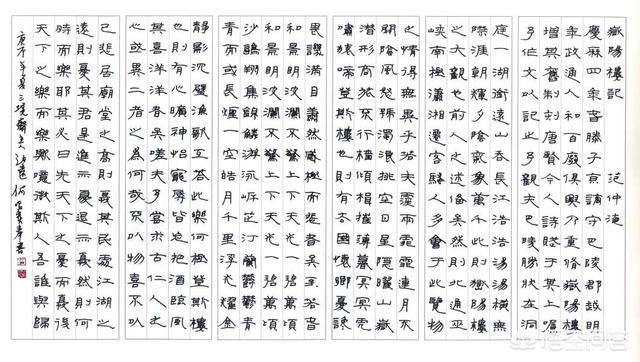 嶽陽樓記 范仲淹
慶曆四年春滕子京謫守巴陵郡越明
年政通人和百廢俱興重脩嶽陽樓
增其舊制刻唐賢今人詩賦於其上囑
予作文以記之予觀夫巴陵勝狀在洞
庭一湖銜遠山吞長江浩浩湯湯橫無
際涯朝暉夕陰氣象萬千此則嶽陽樓
之大觀也前人之述備矣然則北通巫
峽南極瀟湘遷客騷人多會于此覽物
之情得無異乎若夫霪雨霏霏連月不
開陰風怒號濁浪排空日星隱曜山嶽
潛形商旅不行檣傾楫摧薄暮冥冥虎
嘯猿啼登斯樓也則有去國懷鄉憂讒
畏譏滿目蕭然感極而悲者矣至若春
和景明波瀾不驚上下天光一碧萬頃
和景明波瀾不驚上下天光一碧萬頃
沙鷗翔集錦鱗游泳岸芷汀蘭鬱鬱青
青而或長煙一空皓月千里浮光耀金
靜影沉璧漁歌互答此樂何極登斯樓
也則有心曠神怡寵辱皆忘把酒臨風
其喜洋洋者矣嗟夫予嘗求古仁人之
心或異二者之為何哉不以物喜不以
己悲居廟堂之高則憂其民處江湖之
遠則憂其君是進亦憂退亦憂然則何
時而樂耶其必曰先天下之憂而憂後
天下之樂而樂歟噫微斯人吾誰與歸